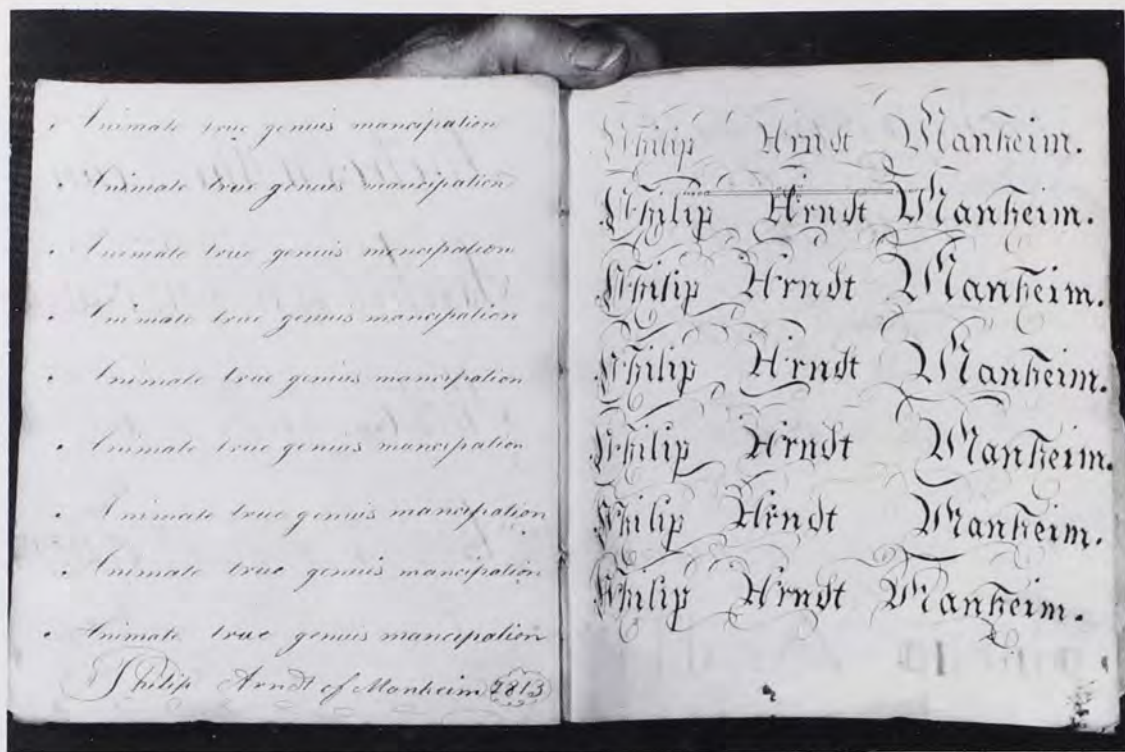 Animate true genius mancipation
Animate true genius mancipation
Animate true genius mancipation
Animate true genius mancipation
Animate true genius mancipation
Animate true genius mancipation
Animate true genius mancipation
Animate true genius mancipation
Animate true genius mancipation
Philip Arndt of Manheim 1813
Philip Arndt Manheim.
Philip Arndt Manheim.
Philip Arndt Manheim.
Philip Arndt Manheim.
Philip Arndt Manheim.
Philip Arndt Manheim.
Philip Arndt Manheim.